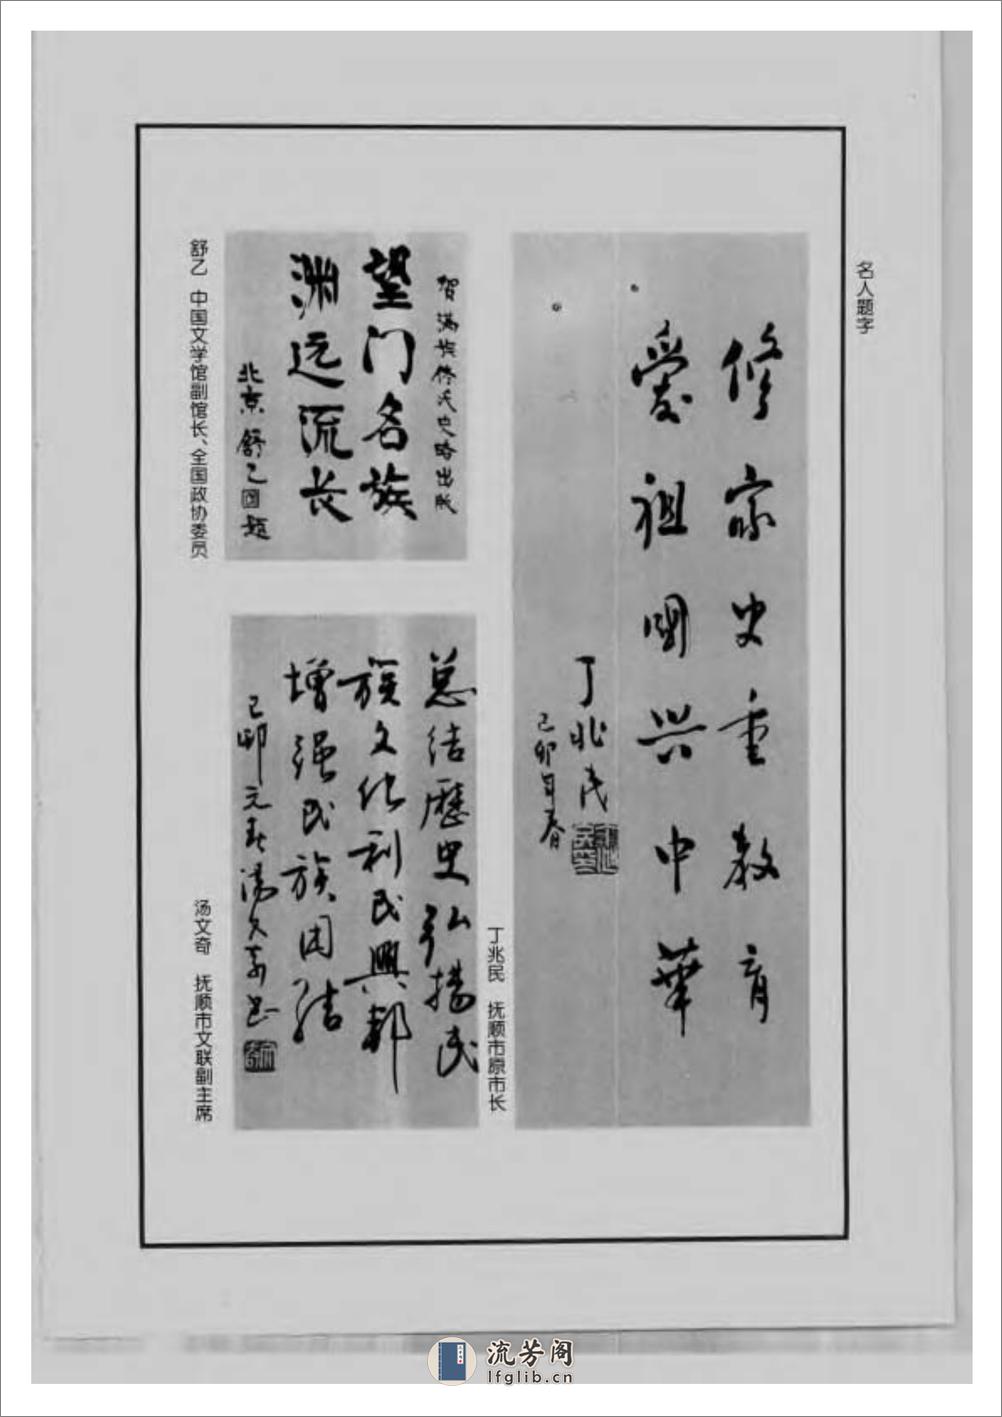 名人题字
修家史重教育
爱祖国兴中華
丁兆民
己卯年春
丁兆民 抚顺市原市长
贺满族佟氏史略出版
望门名族
渊远流长
北京舒乙题
舒乙 中国文学馆副馆长、全国政协委员
总结歷史弘揚民
族文化利民興邦
增强民族团结
己卯元春汤文奇书
汤文奇 抚顺市文联副主席
流芳阁
lfglib.cn